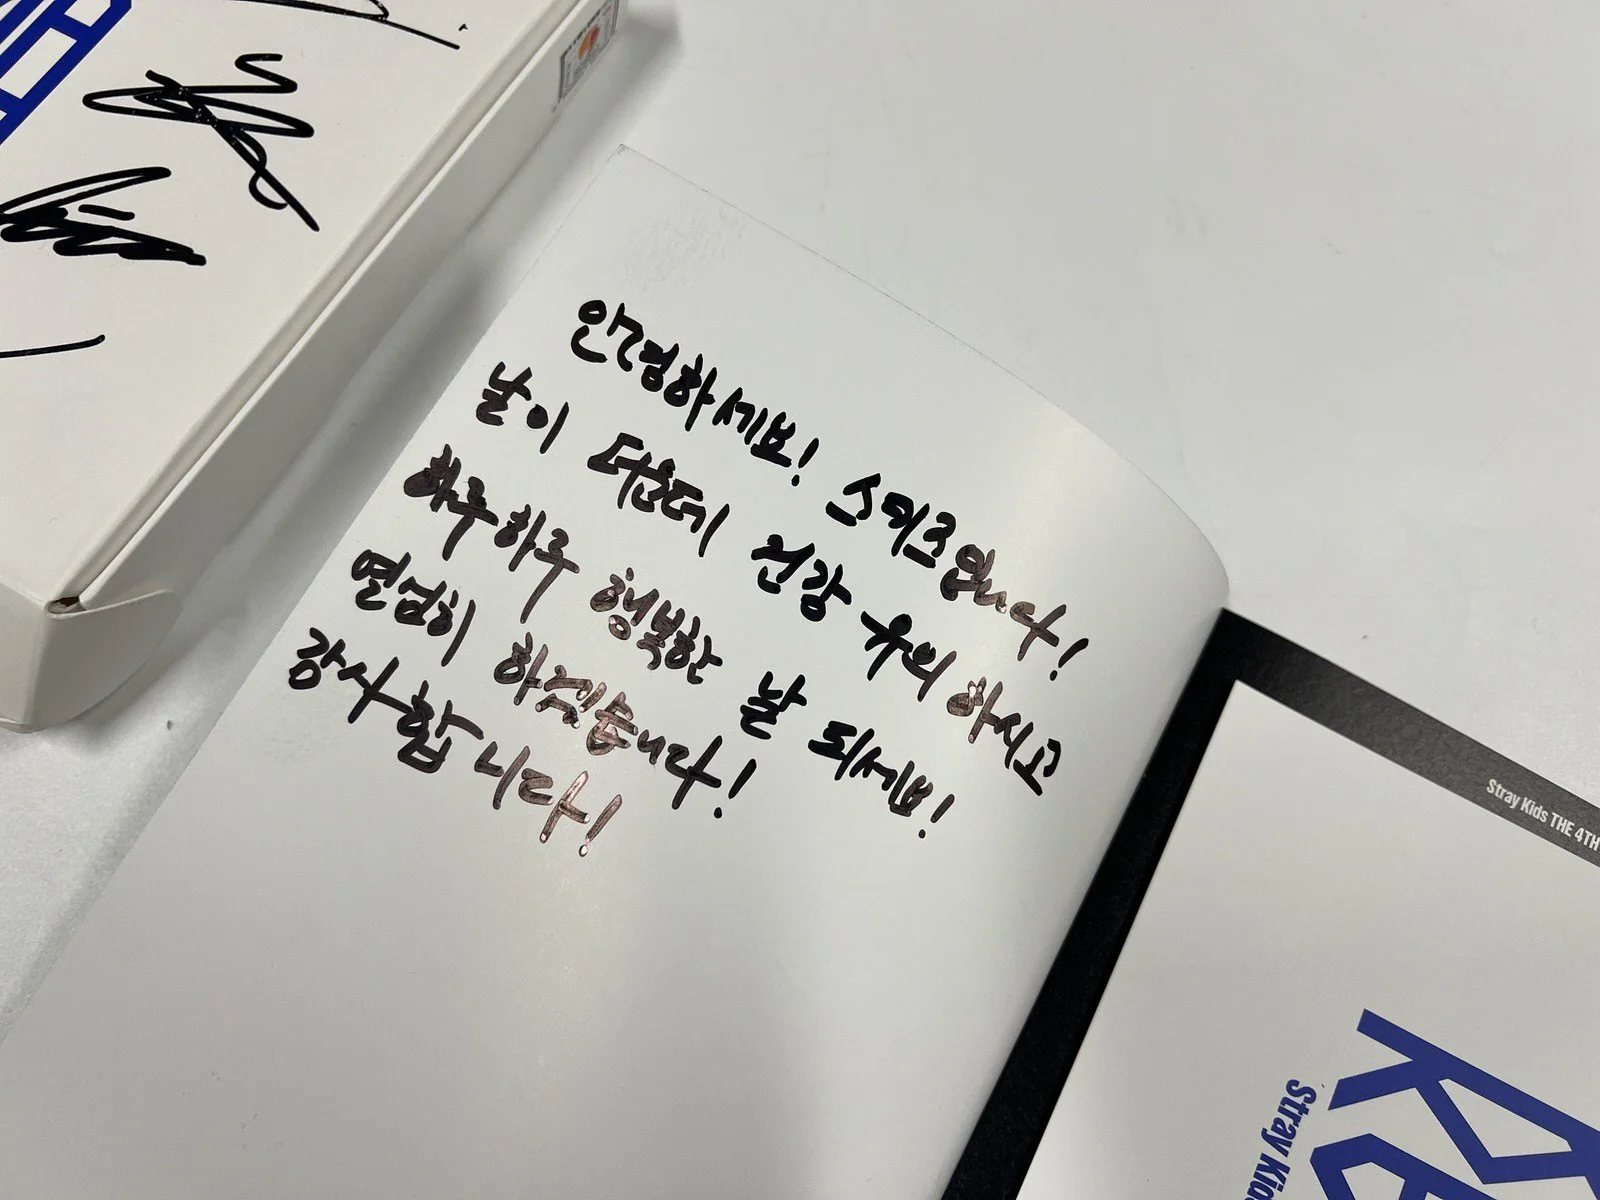 안녕하세요! 스키즈입니다!
날이 더운데 건강 유의 하시고
하루하루 행복한 날 되세요!
열심히 하겠습니다!
감사합니다!
Stray Kids THE 4TH
Stray Kid